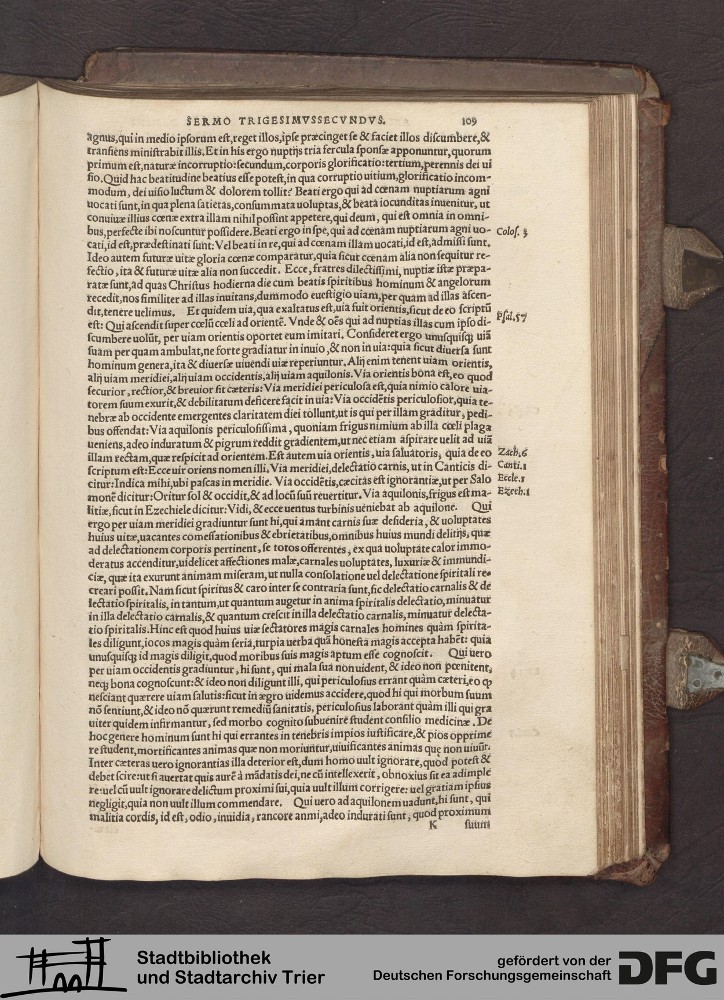 SERMO TRIGESIMVSSECVNDVS. 109
agnus, qui in medio ipsorum est, reget illos, ipse præcinget se & faciet illos discumbere, &
transiens ministrabit illis. Et in his ergo nuptijs tria fercula sponsæ apponuntur, quorum
primum est, naturæ incorruptio: secundum, corporis glorificatio: tertium, perennis dei ui
sio. Quid hac beatitudine beatius esse potest, in qua corruptio uitium, glorificatio incom-
modum, dei uisio luctum & dolorem tollit? Beati ergo qui ad cœnam nuptiarum agni
uocati sunt, in qua plena satietas, consummata uoluptas, & beata iocunditas inuenitur, ut
conuiuæ illius cœnæ extra illam nihil possint appetere, qui deum, qui est omnia in omni-
bus, perfecte ibi noscuntur possidere. Beati ergo in spe, qui ad cœnam nuptiarum agni uo-
Colos. 3
cati, id est, prædestinati sunt: Vel beati in re, qui ad cœnam illam uocati, id est, admissi sunt.
Ideo autem futuræ uitæ gloria cœnæ comparatur, quia sicut cœnam alia non sequitur re-
fectio, ita & futuræ uitæ alia non succedit. Ecce, fratres dilectissimi, nuptiæ istæ præpa-
ratæ sunt, ad quas Christus hodierna die cum beatis spiritibus hominum & angelorum
recedit, nos similiter ad illas inuitans, dummodo eu estigio uiam, per quam ad illas ascen-
dit, tenere uelimus. Et quidem uia, qua exaltatus est, uia fuit orientis, sicut de eo scriptū
Psal. 57
est: Qui ascendit super cœlū cœli ad orientē. Vnde & oēs qui ad nuptias illas cum ipso di-
scumbere uolūt, per uiam orientis oportet eum imitari. Consideret ergo unusquisq; uiā
suam per quam ambulat, ne forte gradiatur in inuio, & non in uia: quia sicut diuersa sunt
hominum genera, ita & diuersæ uiuendi uiæ reperiuntur. Alij enim tenent uiam orientis,
alij uiam meridiei, alij uiam occidentis, alij uiam aquilonis. Via orientis bona est, eo quod
securior, rectior, & breuior sit cæteris: Via meridiei periculosa est, quia nimio calore uia-
torem suum exurit, & debilitatum deficere facit in uia: Via occidētis periculosior, quia te-
nebræ ab occidente emergentes claritatem diei tollunt, ut is qui per illam graditur, pedi-
bus offendat: Via aquilonis periculosissima, quoniam frigus nimium ab illa cœli plaga
ueniens, adeo induratum & pigrum reddit gradientem, ut nec etiam aspirare uelit ad uiā
illam rectam, quæ respicit ad orientem. Est autem uia orientis, uia saluatoris, quia de eo
Zach. 6
scriptum est: Ecce uir oriens nomen illi. Via meridiei, delectatio carnis, ut in Canticis di-
Canti. 1
citur: Indica mihi, ubi pascas in meridie. Via occidētis, cæcitas est ignorantiæ, ut per Salo
Eccle. 1
monē dicitur: Oritur sol & occidit, & ad locū suū reuertitur. Via aquilonis, frigus est ma-
Ezech. 1
litiæ, sicut in Ezechiele dicitur: Vidi, & ecce uentus turbinis ueniebat ab aquilone. Qui
ergo per uiam meridiei gradiuntur sunt hi, qui amant carnis suæ desideria, & uoluptates
huius uitæ, uacantes comessationibus & ebrietatibus, omnibus huius mundi delitijs, quæ
ad delectationem corporis pertinent, se totos offerentes, ex qua uoluptate calor immo-
deratus accenditur, uidelicet affectiones malæ, carnales uoluptates, luxuriæ & immundi-
ciæ, quæ ita exurunt animam miseram, ut nulla consolatione uel delectatione spiritali re-
creari possit. Nam sicut spiritus & caro inter se contraria sunt, sic delectatio carnalis & de
lectatio spiritalis, in tantum, ut quantum augetur in anima spiritalis delectatio, minuatur
in illa delectatio carnalis, & quantum crescit in illa delectatio carnalis, minuatur delecta-
tio spiritalis. Hinc est quod huius uiæ sectatores magis carnales homines quàm spirita-
les diligunt, iocos magis quàm seria, turpia uerba quā honesta magis accepta habēt: quia
unusquisq; id magis diligit, quod moribus suis magis aptum esse cognoscit. Qui uero
per uiam occidentis gradiuntur, hi sunt, qui mala sua non uident, & ideo non pœnitent,
neq; bona cognoscunt: & ideo non diligunt illi, qui periculosius errant quàm cæteri, eo q̃
nesciant quærere uiam salutis: sicut in ægro uidemus accidere, quod hi qui morbum suum
nō sentiunt, & ideo nō quærunt remediū sanitatis, periculosius laborant quàm illi qui gra
uiter quidem infirmantur, sed morbo cognito subuenire student consilio medicinæ. De
hoc genere hominum sunt hi qui errantes in tenebris impios iustificare, & pios opprime
re student, mortificantes animas quæ non moriuntur, uiuificantes animas quę non uiuūt.
Inter cæteras uero ignorantias illa deterior est, dum homo uult ignorare, quod potest &
debet scire: ut si auertat quis aurē à mādatis dei, ne cū intellexerit, obnoxius sit ea adimple
re: uel cū uult ignorare delictum proximi sui, quia uult illum corrigere: uel gratiam ipsius
negligit, quia non uult illum commendare. Qui uero ad aquilonem uadunt, hi sunt, qui
malitia cordis, id est, odio, inuidia, rancore anmi, adeo indurati sunt, quod proximum
K suum
Stadtbibliothek
und Stadtarchiv Trier
gefördert von der
Deutschen Forschungsgemeinschaft
DFG